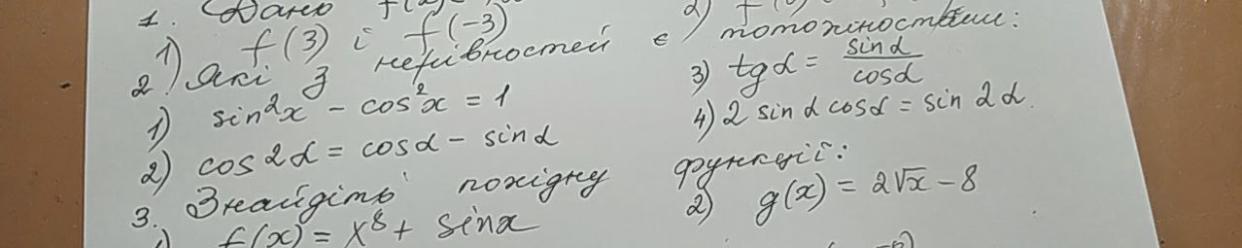 1. Дано
1) f(3) і f(-3)
2) Які з нерівностей є тотожностями:
1) sin²x - cos²x = 1
2) cos2α = cosα - sinα
3) tgα = sinα/cosα
4) 2 sinα cosα = sin 2α.
3. Знайдіть похідну функції:
1) f(x) = x⁸ + sinx
2) g(x) = 2√x - 8